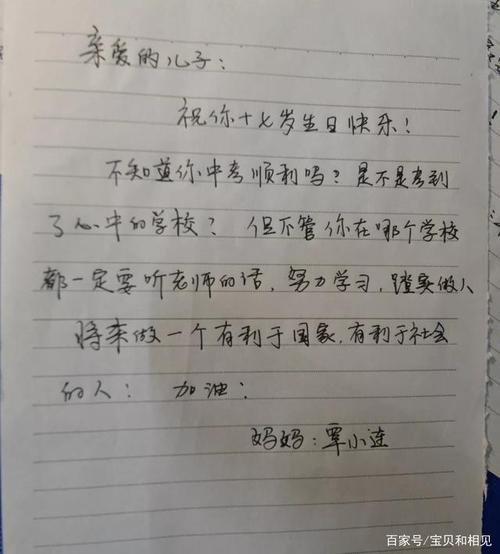 亲爱的儿子：
祝你十七岁生日快乐！
不知道你中考顺利吗？是不是考到
了心中的学校？但不管你在哪个学校
都一定要听老师的话，努力学习，踏实做人
将来做一个有利于国家，有利于社会
的人！加油！
妈妈：覃小连
百家号/宝贝和相见